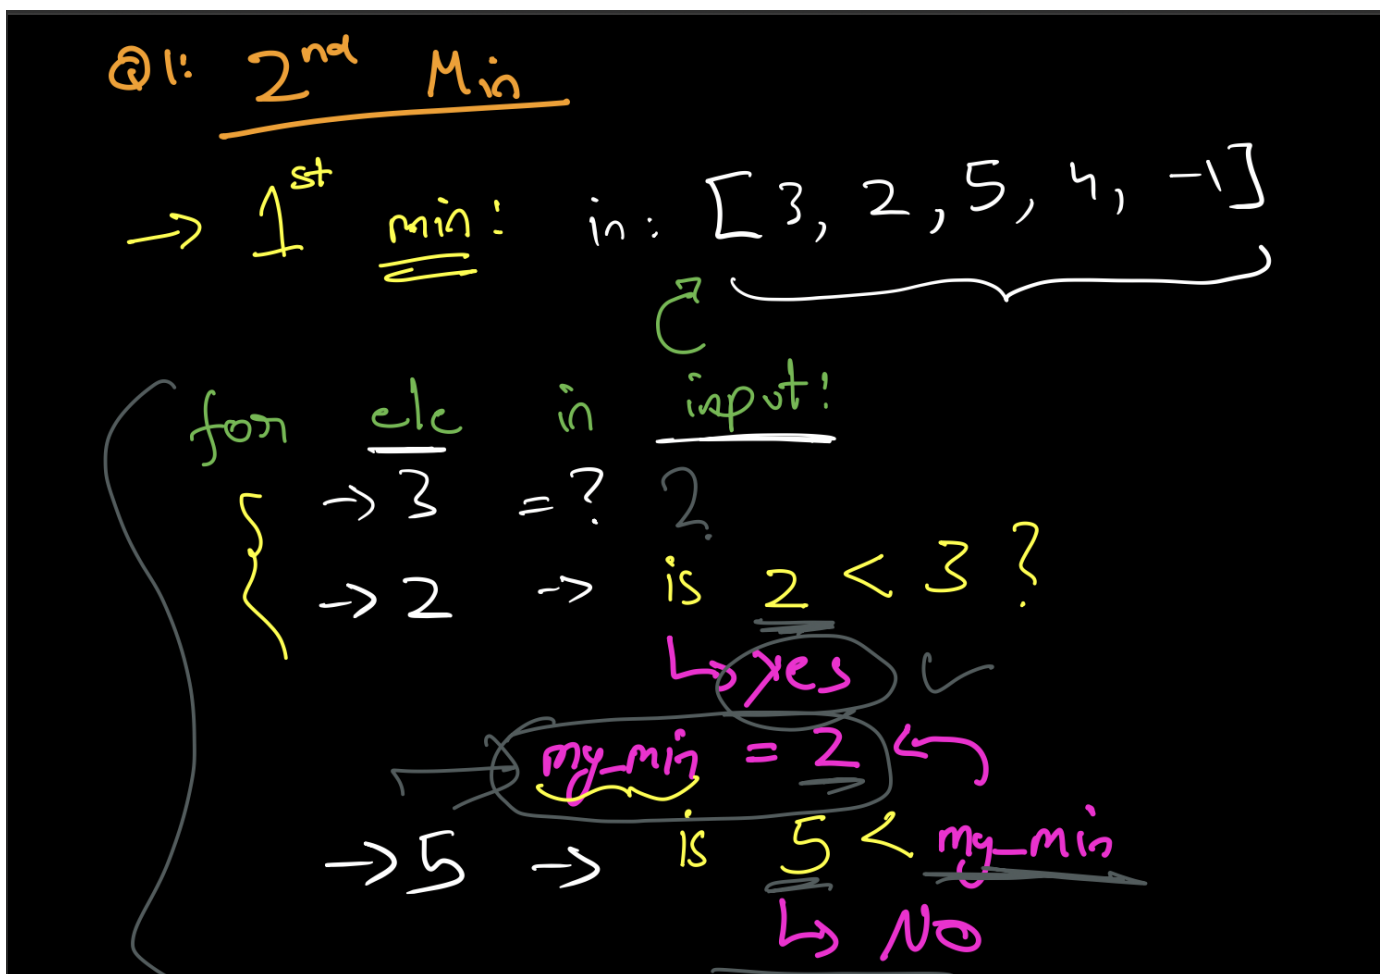 Q1: 2nd Min
→ 1st min: in: [3, 2, 5, 4, -1]
for ele in input:
→ 3 = ? 2
→ 2 → is 2 < 3 ?
↳ yes ✓
my_min = 2
→ 5 → is 5 < my_min
↳ NO